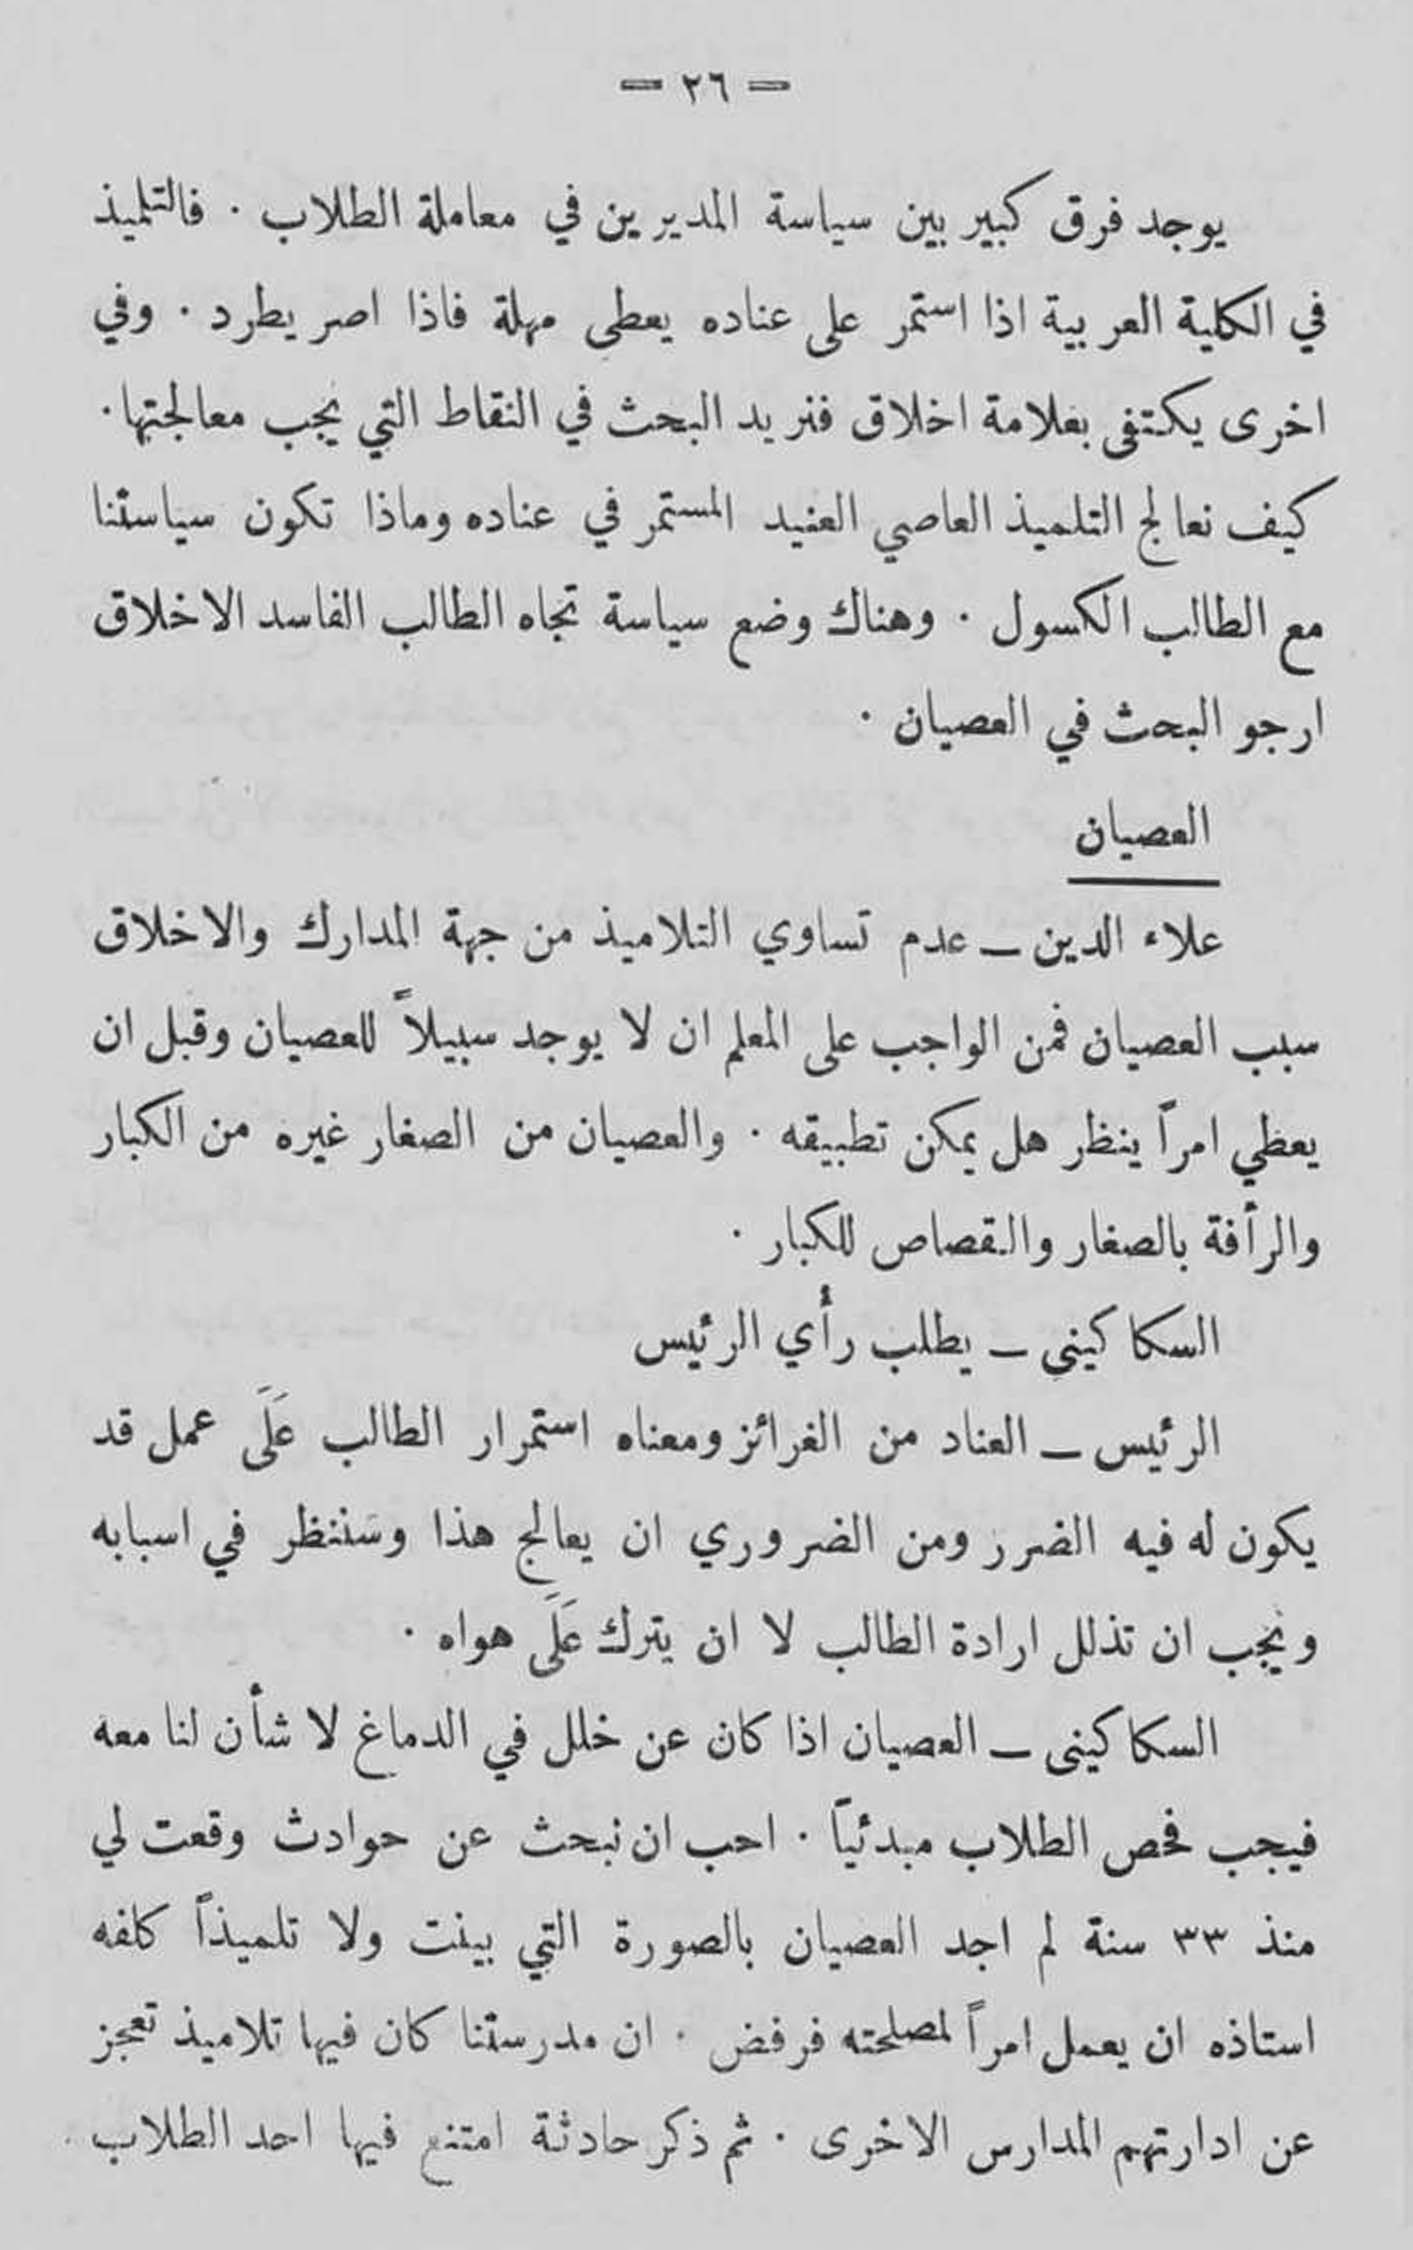 = ٢٦ =
يوجد فرق كبير بين سياسة المديرين في معاملة الطلاب . فالتلميذ
في الكلية العربية اذا استمر على عناده يعطى مهلة فاذا اصر يطرد . وفي
اخرى يكتفى بعلامة اخلاق فنريد البحث في النقاط التي يجب معالجتها .
كيف نعالج التلميذ العاصي العنيد المستمر في عناده وماذا تكون سياستنا
مع الطالب الكسول . وهناك وضع سياسة تجاه الطالب الفاسد الاخلاق
ارجو البحث في العصيان .
العصيان
علاء الدين — عدم تساوي التلاميذ من جهة المدارك والاخلاق
سبب العصيان فمن الواجب على المعلم ان لا يوجد سبيلاً للعصيان وقبل ان
يعطي امراً ينظر هل يمكن تطبيقه . والعصيان من الصغار غيره من الكبار
والرأفة بالصغار والقصاص للكبار .
السكاكيني — يطلب رأي الرئيس
الرئيس — العناد من الغرائز ومعناه استمرار الطالب عَلَى عمل قد
يكون له فيه الضرر ومن الضروري ان يعالج هذا وسننظر في اسبابه
ويجب ان تذلل ارادة الطالب لا ان يترك عَلَى هواه .
السكاكيني — العصيان اذا كان عن خلل في الدماغ لا شأن لنا معه
فيجب فحص الطلاب مبدئياً . احب ان نبحث عن حوادث وقعت لي
منذ ٣٣ سنة لم اجد العصيان بالصورة التي بينت ولا تلميذاً كلفه
استاذه ان يعمل امراً لمصلحته فرفض . ان مدرستنا كان فيها تلاميذ تعجز
عن ادارتهم المدارس الاخرى . ثم ذكر حادثة امتنع فيها احد الطلاب .